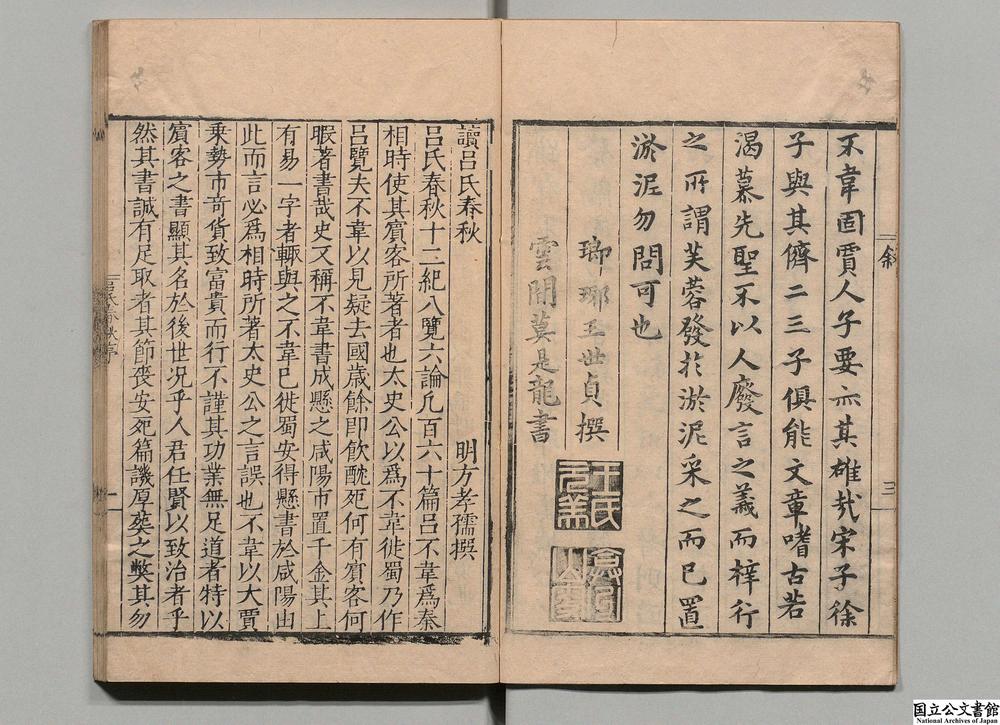 叙
三
不韋固賈人子要亦其雄哉宋子徐
子與其儕二三子俱能文章嗜古若
渴慕先聖不以人廢言之義而梓行
之所謂芙蓉發於淤泥采之而已置
淤泥勿問可也
瑯琊王世貞撰
雲間莫是龍書
王氏元美
讀呂氏春秋
明方孝孺撰
呂氏春秋十二紀八覽六論凡百六十篇呂不韋爲秦
相時使其賓客所著者也太史公以爲不韋徙蜀乃作
呂覽夫不韋以見疑去國歲餘即飲酖死何有賓客何
暇著書哉史又稱不韋書成懸之咸陽市置千金其上
有易一字者輙與之不韋已徙蜀安得懸書於咸陽由
此而言必爲相時所著太史公之言誤也不韋以大賈
乗勢市奇貨致富貴而行不謹其功業無足道者特以
賓客之書顯其名於後世况乎人君任賢以致治者乎
然其書誠有足取者其節喪安死篇譏厚葬之弊其勿
呂氏春秋序
一
国立公文書館
National Archives of Japan